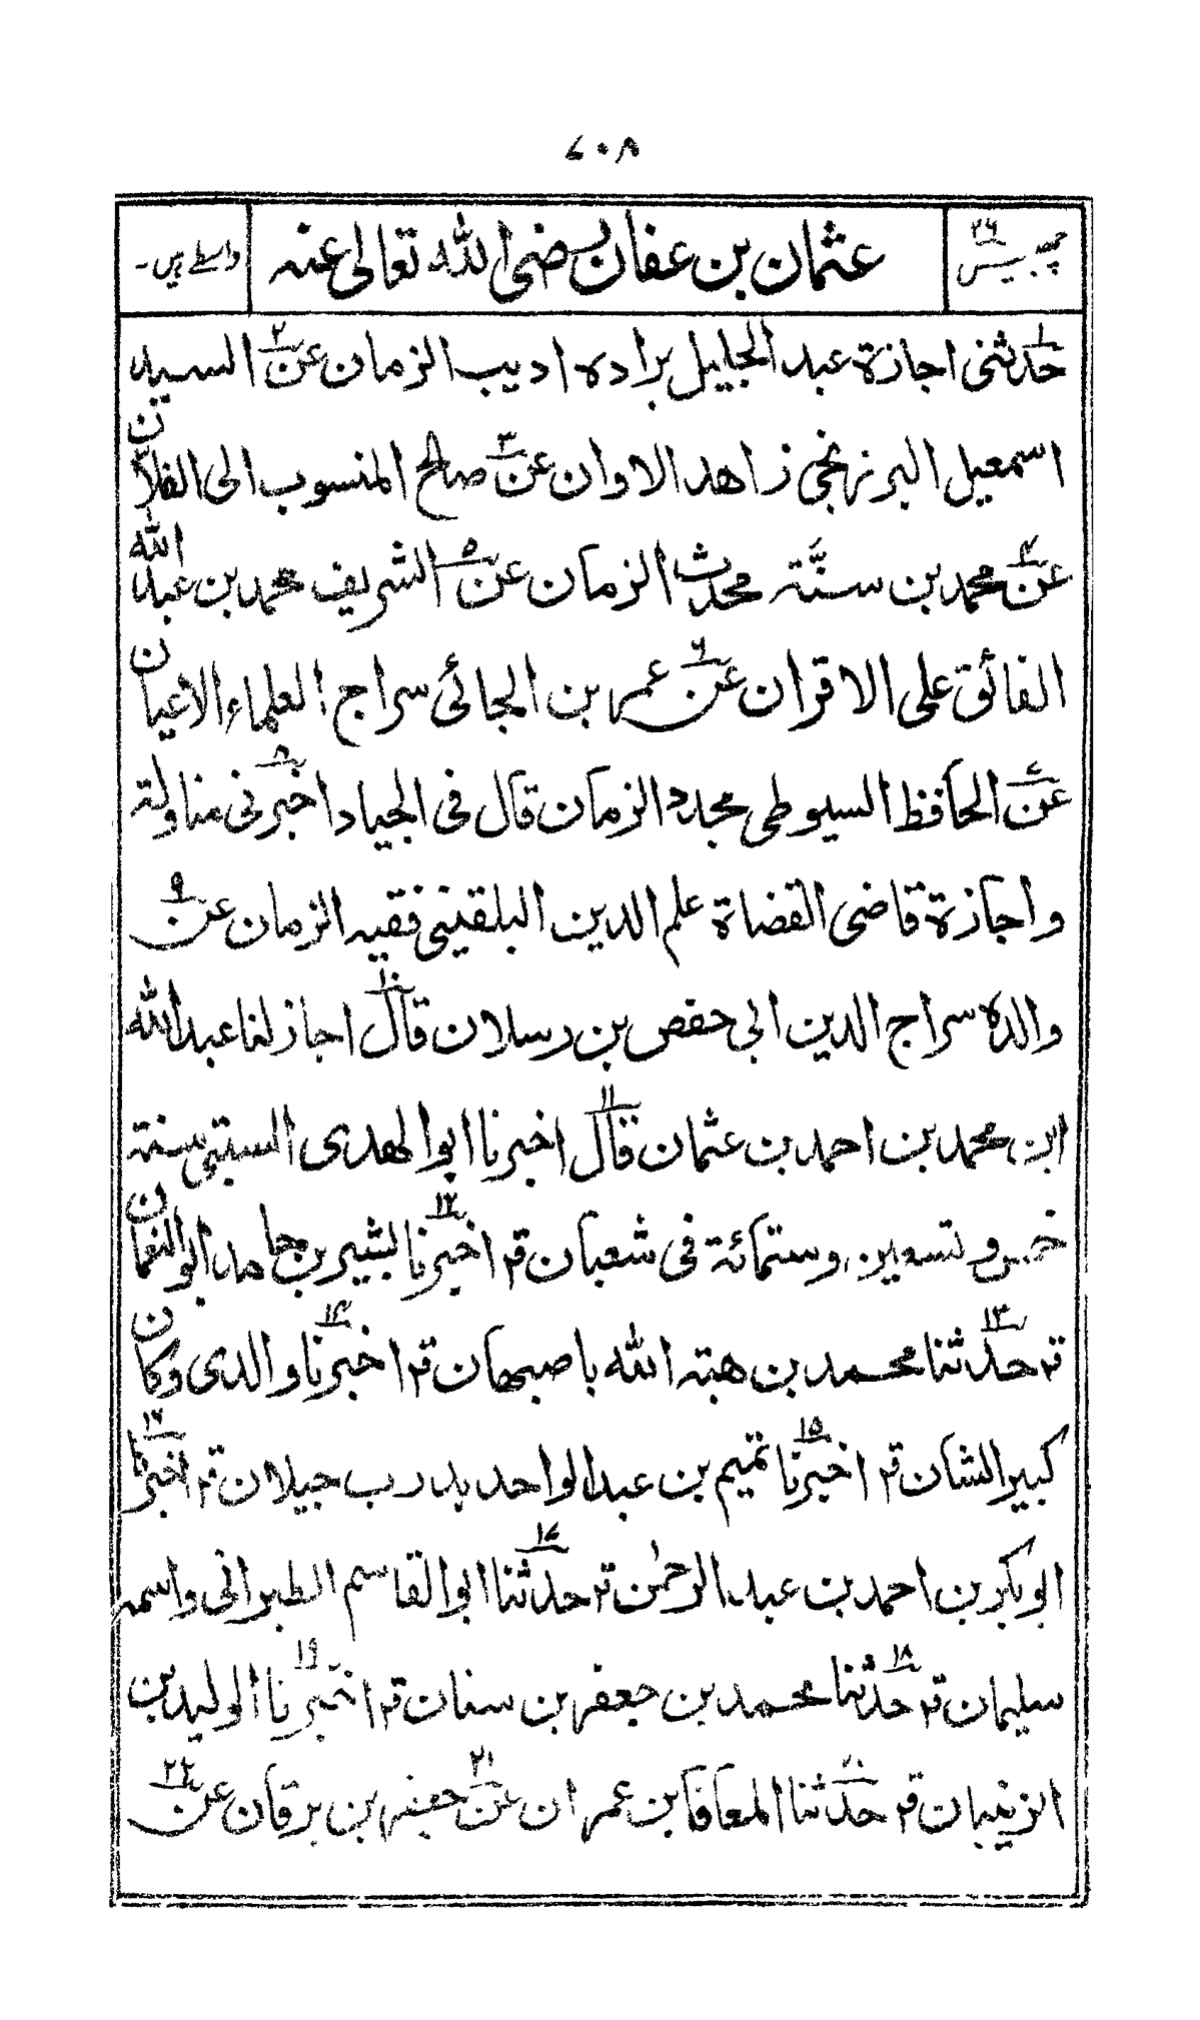 ۷۰۸
چھبیس ۲۶ عثمان بن عفان رضی اللہ تعالی عنہ واسطے ہیں۔
حدثنی۱ اجازة عبد الجلیل براده ادیب الزمان عن۲ السید
اسمعیل البرزنجی زاهد الاوان عن۳ صالح المنسوب الی الفلان
عن۴ محمد بن سنّة محدث الزمان عن۵ الشریف محمد بن عبد الله
الفائق علی الاقران عن۶ عمر بن الجائی سراج العلماء الاعیان
عن۷ الحافظ السیوطی مجدد الزمان قال فی الجیاد اخبرنی۸ مناولة
واجازة قاضی القضاة علم الدین البلقینی فقیه الزمان عن۹
والده سراج الدین ابی حفص بن رسلان قال۱۰ اجاز لنا عبد الله
ابن محمد بن احمد بن عثمان قال۱۱ اخبرنا ابوالهدی السبتی سنة
خمس وتسعین وستمائة فی شعبان قر اخبرنا۱۲ بشیر بن حامد ابوالنعمان
قر حدثنا۱۳ محمد بن هبتہ الله باصبهان قر اخبرنا۱۴ والدی وکان
کبیر الشان قر اخبرنا۱۵ تمیم بن عبد الواحد بدرب جیلان قر اخبرنا۱۶
ابوبکر بن احمد بن عبد الرحمٰن قر حدثنا۱۷ ابوالقاسم الطبرانی واسمه
سلیمان قر حدثنا۱۸ محمد بن جعفر بن سفان قر اخبرنا۱۹ الولید بن
الزینبان قر حدثنا۲۰ المعافا بن عمران عن۲۱ جعفر بن برقان عن۲۲